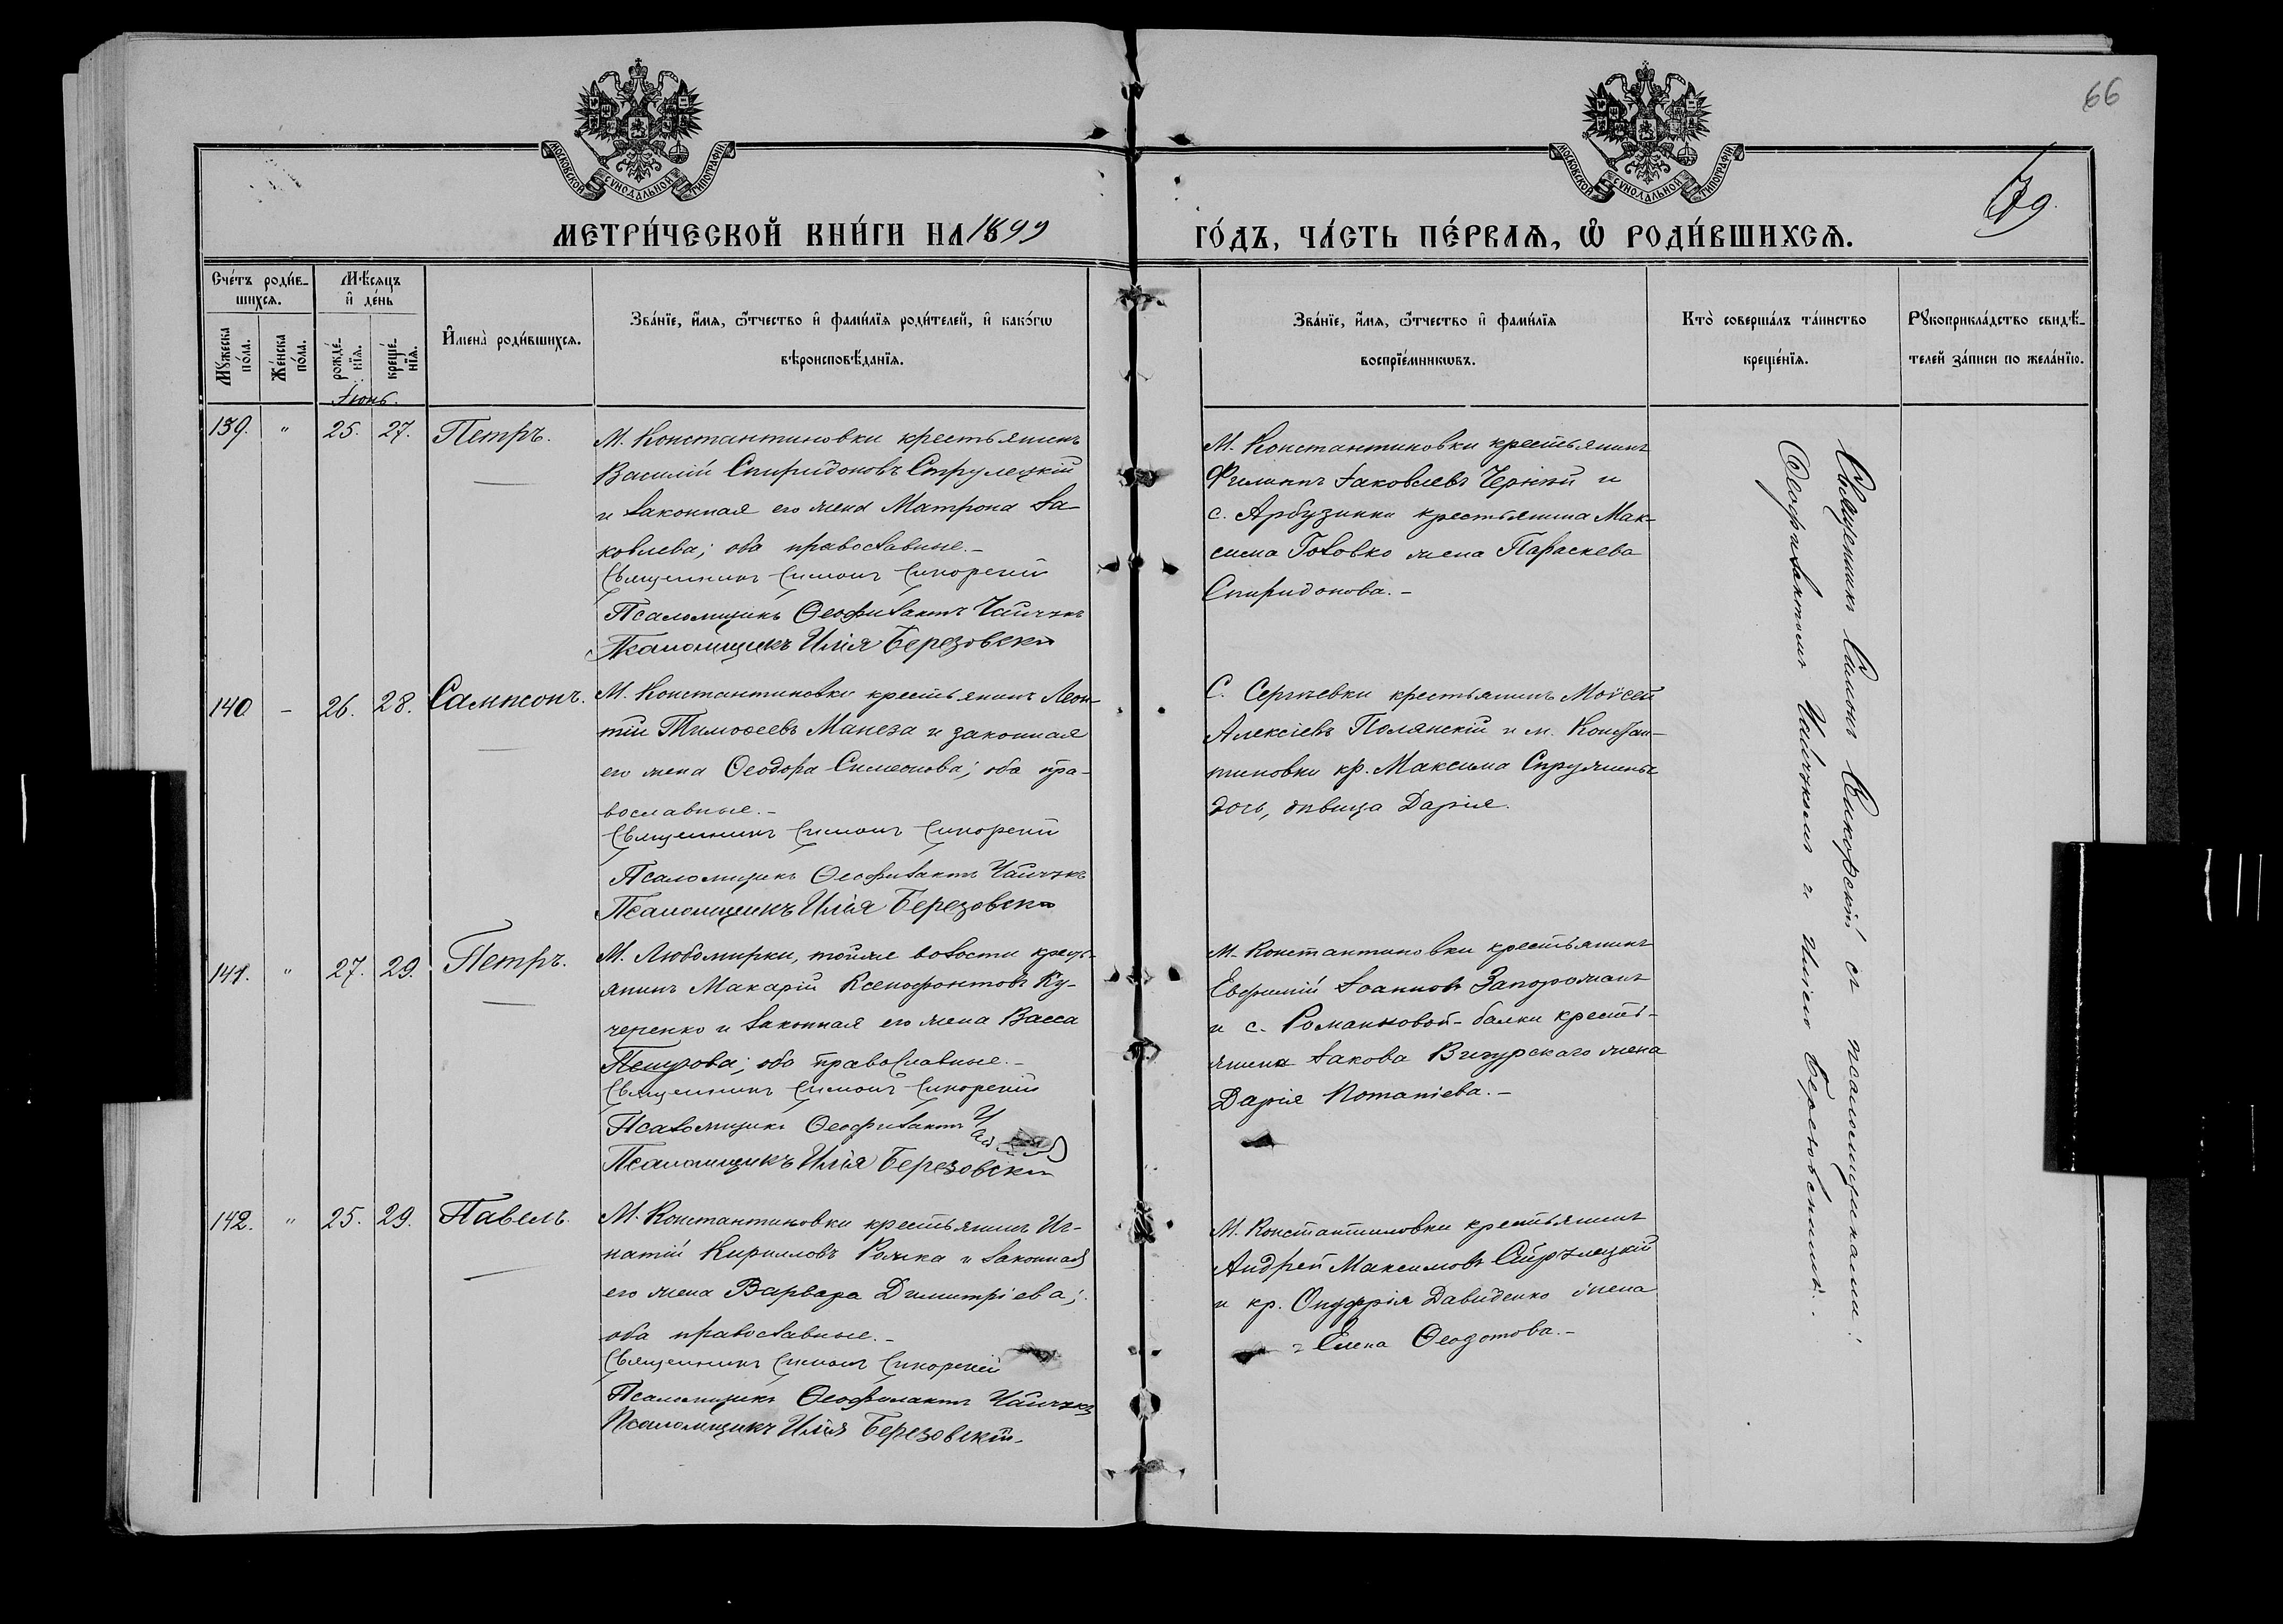 66
79.
МОСКОВСКОЙ СУНОДАЛЬНОЙ ТИПОГРАФІИ
МОСКОВСКОЙ СУНОДАЛЬНОЙ ТИПОГРАФІИ
МЕТРИ́ЧЕСКОЙ КНИ́ГИ НА 1899
ГО́ДЪ, ЧА́СТЬ ПЕ́РВАѦ, Ѡ҆ РОДИ́ВШИХСѦ.
Сче́тъ роди́вшихсѧ.
Мꙋ́жеска по́ла.
Же́нска по́ла.
Мѣ́сѧцъ и҆ де́нь
рожде́нїѧ.
креще́нїѧ.
И҆мена̀ роди́вшихсѧ.
Зва́нїе, и҆́мѧ, ѻ҆́тчество и҆ фами́лїѧ роди́телей, и҆ како́гѡ
вѣроисповѣ́данїѧ.
Зва́нїе, и҆́мѧ, ѻ҆́тчество и҆ фами́лїѧ
воспрїе́мникѡвъ.
Кто̀ соверша́лъ та́инство
креще́нїѧ.
Рꙋкоприкла́дство свидѣ́телей за́писи по жела́нїю.
Іюнь.
139. " 25. 27. Петръ.
М. Константиновки крестьянинъ
Василій Спиридоновъ Струлецкій
и законная его жена Матрона Іа-
ковлева; оба православные.-
Священникъ Симонъ Сикорскій
Псаломщикъ Ѳеофилактъ Чайчукъ
Псаломщикъ Илія Березовскій
М. Константиновки крестьянинъ
Филиппъ Іаковлевъ Черный и
с. Арбузинки крестьянина Мак-
сима Головко жена Параскева
Спиридонова.-
140 - 26. 28. Сампсонъ.
М. Константиновки крестьянинъ Леон-
тій Тимоѳеевъ Манега и законная
его жена Ѳеодора Симеонова; оба пра-
вославные.-
Священникъ Симонъ Сикорскій
Псаломщикъ Ѳеофилактъ Чайчукъ
Псаломщикъ Илія Березовскій
С. Сергѣевки крестьянинъ Моѵсей
Алексіевъ Полянскій и м. Констан-
тиновки кр. Максима
дочь, дѣвица Дарія.
141. " 27. 29. Петръ.
М. Любомирки, тойже волости кресть-
янинъ Макарій Ксенофонтовъ Ку-
черенко и законная его жена Васса
Петрова; оба православные.-
Священникъ Симонъ Сикорскій
Псаломщикъ Ѳеофилактъ
Псаломщикъ Илія Березовскій
М. Константиновки крестьянинъ
Евфимій Іоанновъ Запорожанъ
и с. Романковой-балки кресть-
янина Іакова жена
Дарія Потапіева.-
142. " 25. 29. Павелъ.
М. Константиновки крестьянинъ Иг-
натій Кирилловъ Рожка и законная
его жена Варвара Димитріева;
оба православные.-
Священникъ Симонъ Сикорскій
Псаломщикъ Ѳеофилактъ Чайчукъ
Псаломщикъ Илія Березовскій.
М. Константиновки крестьянинъ
Андрей Максимовъ Стрѣлецкій
и кр. Онуфрія Давиденко жена
Елена Ѳеодотова.-
Священникъ Симонъ Сикорскій съ псаломщиками:
Ѳеофилактомъ Чайчукомъ и Иліею Березовскимъ.